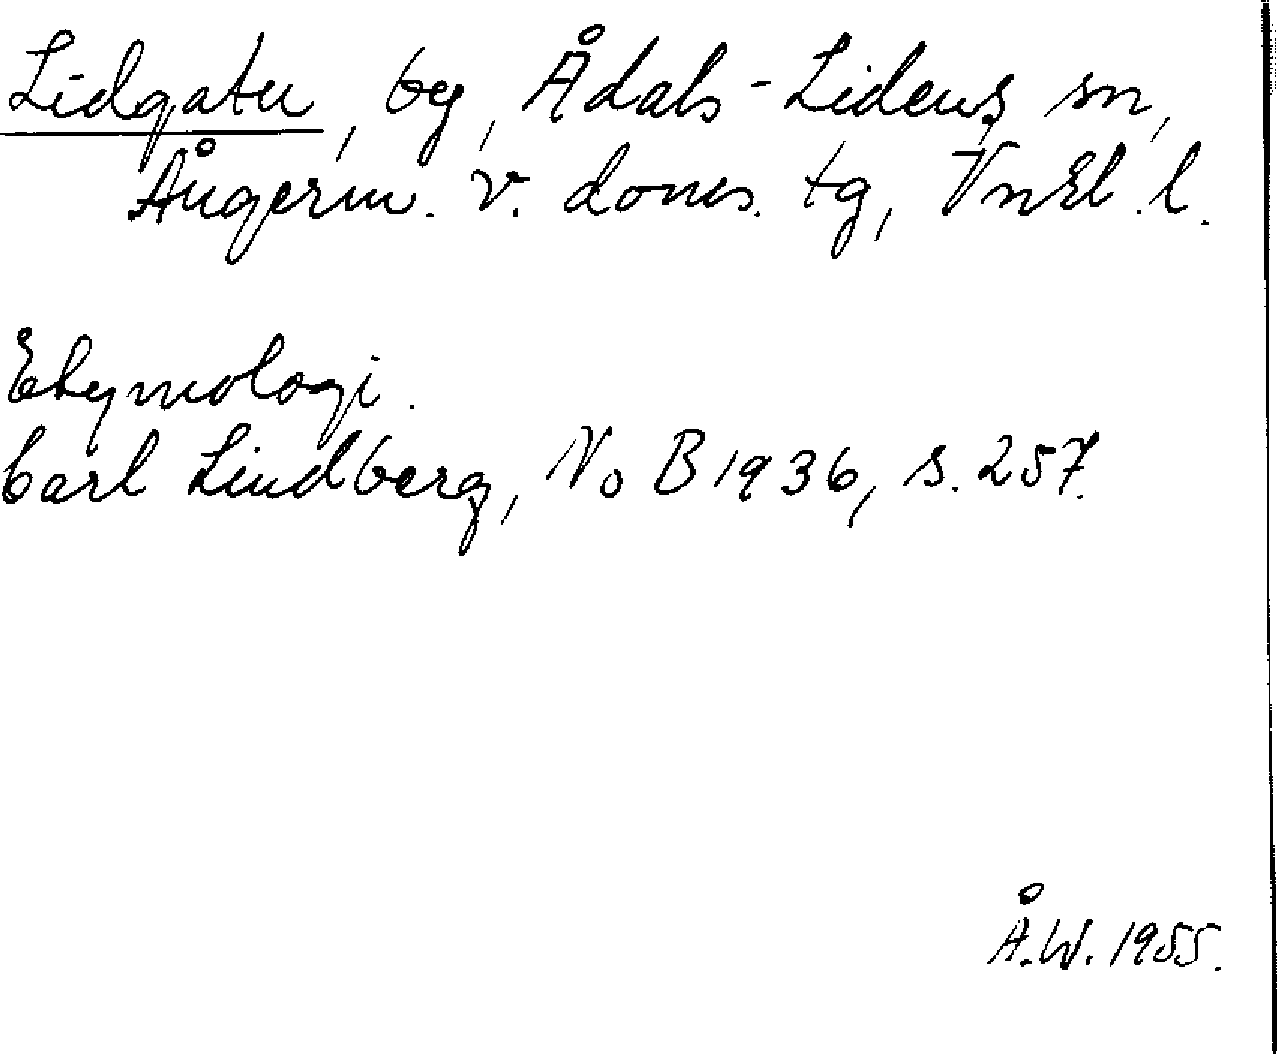 Lidgatu, by, Ådals-Lidens sn,
Ångerm. v. doms. tg, Vnrl. l.
Etymologi.
Carl Lindberg, NoB 1936, s. 257.
Å.W. 1955.